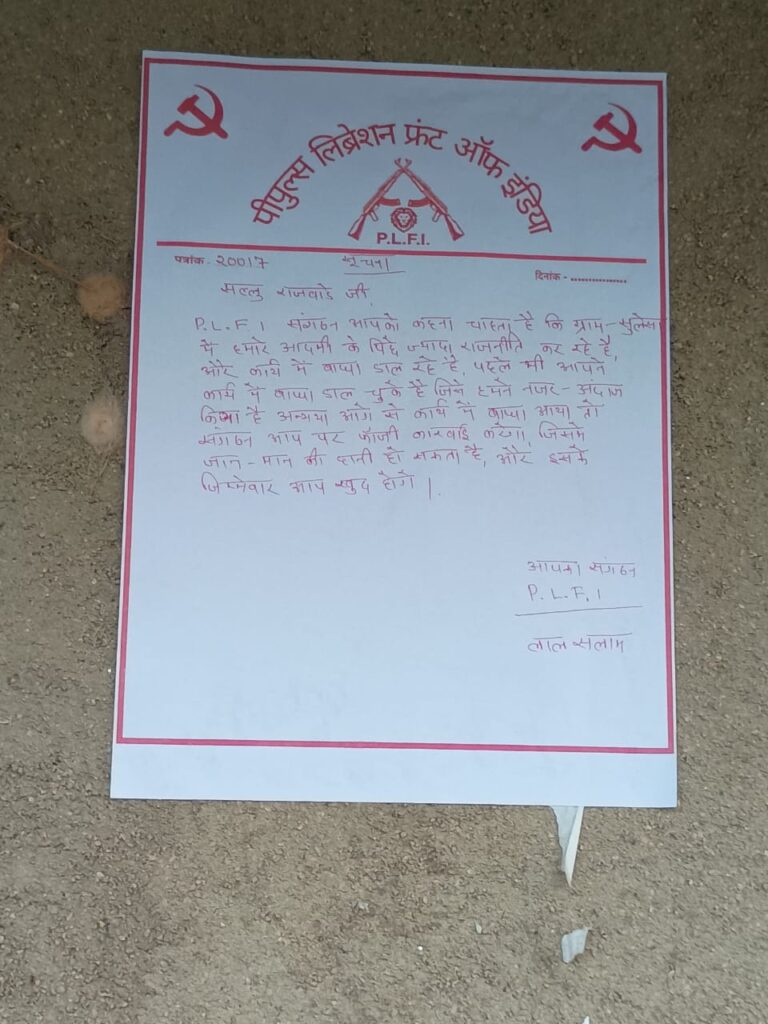 पीपुल्स लिब्रेशन फ्रंट ऑफ इंडिया
P.L.F.I.
पत्रांक - 20017
सूचना
दिनांक - ................
मल्लु राजवाडे जी,
P.L.F.I संगठन आपको कहना चाहता है कि ग्राम - सुलेसा
में हमारे आदमी के पिछे ज्यादा राजनीति कर रहे है,
और कार्य में बाधा डाल रहे है, पहले भी आपने
कार्य में बाधा डाल चुके है जिसे हमने नजर - अंदाज
किया है अन्यथा आगे से कार्य में बाधा आया तो
संगठन आप पर फौजी कारवाई करेगा, जिसमे
जान - मान की हानी हो सकता है, और इसके
जिम्मेवार आप खुद होगे |
आपका संगठन
P.L.F.I
लाल सलाम